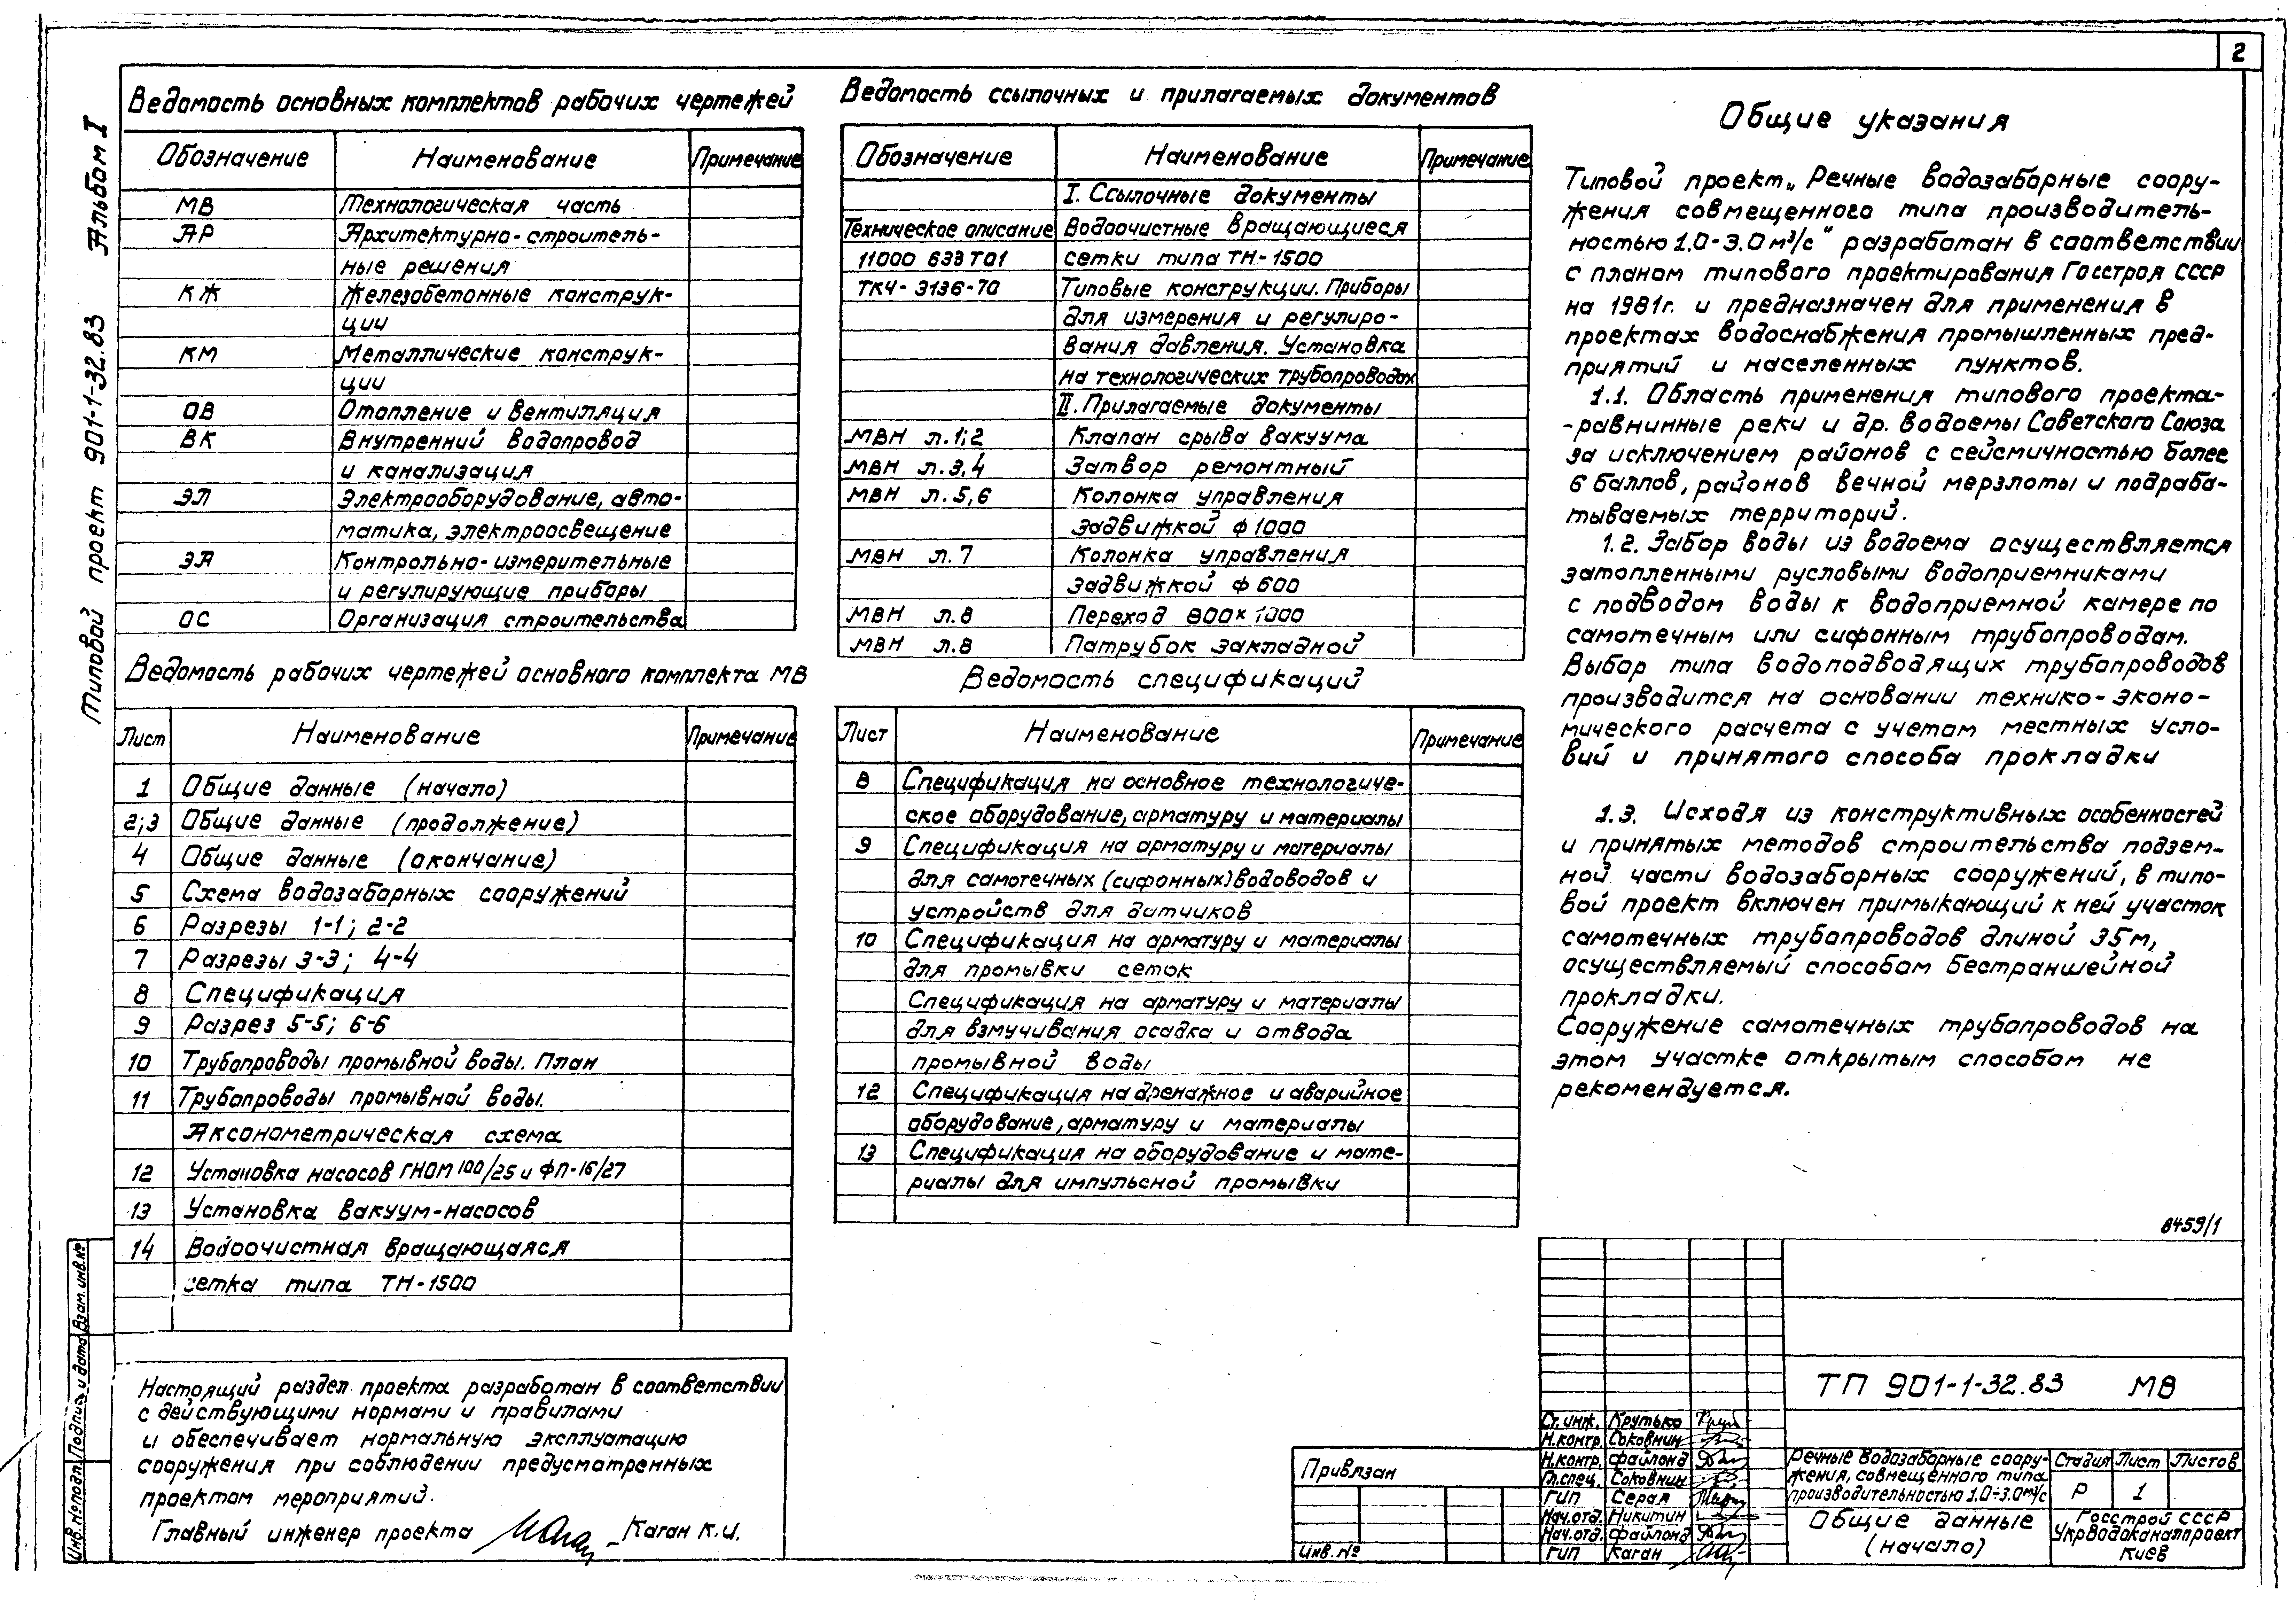 2
Альбом I
Типовой проект 901-1-32.83
Ведомость основных комплектов рабочих чертежей
Обозначение Наименование Примечание
МВ Технологическая часть
АР Архитектурно-строитель-
ные решения
КЖ Железобетонные конструк-
ции
КМ Металлические конструк-
ции
ОВ Отопление и вентиляция
ВК Внутренний водопровод
и канализация
ЭЛ Электрооборудование, авто-
матика, электроосвещение
ЭА Контрольно-измерительные
и регулирующие приборы
ОС Организация строительства
Ведомость рабочих чертежей основного комплекта МВ
Лист Наименование Примечание
1 Общие данные (начало)
2;3 Общие данные (продолжение)
4 Общие данные (окончание)
5 Схема водозаборных сооружений
6 Разрезы 1-1; 2-2
7 Разрезы 3-3; 4-4
8 Спецификация
9 Разрез 5-5; 6-6
10 Трубопроводы промывной воды. План
11 Трубопроводы промывной воды.
Аксонометрическая схема
12 Установка насосов ГНОМ 100/25 и ФП-16/27
13 Установка вакуум-насосов
14 Водоочистная вращающаяся
сетка типа ТН-1500
Настоящий раздел проекта разработан в соответствии
с действующими нормами и правилами
и обеспечивает нормальную эксплуатацию
сооружения при соблюдении предусмотренных
проектом мероприятий.
Главный инженер проекта Каган К.И.
Ведомость ссылочных и прилагаемых документов
Обозначение Наименование Примечание
I. Ссылочные документы
Техническое описание Водоочистные вращающиеся
11000 633 ТО1 сетки типа ТН-1500
ТК4-3136-70 Типовые конструкции. Приборы
для измерения и регулиро-
вания давления. Установка
на технологических трубопроводах
II. Прилагаемые документы
МВН л.1;2 Клапан срыва вакуума
МВН л.3,4 Затвор ремонтный
МВН л.5,6 Колонка управления
задвижкой ф 1000
МВН л.7 Колонка управления
задвижкой ф 600
МВН л.8 Переход 800×1000
МВН л.8 Патрубок закладной
Ведомость спецификаций
Лист Наименование Примечание
8 Спецификация на основное технологиче-
ское оборудование, арматуру и материалы
9 Спецификация на арматуру и материалы
для самотечных (сифонных) водоводов и
устройств для датчиков
10 Спецификация на арматуру и материалы
для промывки сеток
Спецификация на арматуру и материалы
для взмучивания осадка и отвода
промывной воды
12 Спецификация на дренажное и аварийное
оборудование, арматуру и материалы
13 Спецификация на оборудование и мате-
риалы для импульсной промывки
Общие указания
Типовой проект „Речные водозаборные соору-
жения совмещенного типа производитель-
ностью 1.0-3.0 м³/с" разработан в соответствии
с планом типового проектирования Госстроя СССР
на 1981г. и предназначен для применения в
проектах водоснабжения промышленных пред-
приятий и населенных пунктов.
1.1. Область применения типового проекта-
-равнинные реки и др. водоемы Советского Союза
за исключением районов с сейсмичностью более
6 баллов, районов вечной мерзлоты и подраба-
тываемых территорий.
1.2. Забор воды из водоема осуществляется
затопленными русловыми водоприемниками
с подводом воды к водоприемной камере по
самотечным или сифонным трубопроводам.
Выбор типа водоподводящих трубопроводов
производится на основании технико-эконо-
мического расчета с учетом местных усло-
вий и принятого способа прокладки
1.3. Исходя из конструктивных особенностей
и принятых методов строительства подзем-
ной части водозаборных сооружений, в типо-
вой проект включен примыкающий к ней участок
самотечных трубопроводов длиной 35м,
осуществляемый способом бестраншейной
прокладки.
Сооружение самотечных трубопроводов на
этом участке открытым способом не
рекомендуется.
8459/1
ТП 901-1-32.83 МВ
Ст. инж. Крутько
Н.контр. Соковнин
Н.контр. Файлонд
Гл.спец. Соковнин
ГИП Серая
Нач.отд. Никитин
Нач.отд. Файлонд
ГИП Каган
Речные водозаборные соору-
жения, совмещенного типа
производительностью 1.0÷3.0м³/с
Стадия Лист Листов
Р 1
Общие данные
(начало)
Госстрой СССР
Укрводоканалпроект
Киев
Привязан
Инв. №
Инв.№ подл. Подпись и дата Взам. инв.№